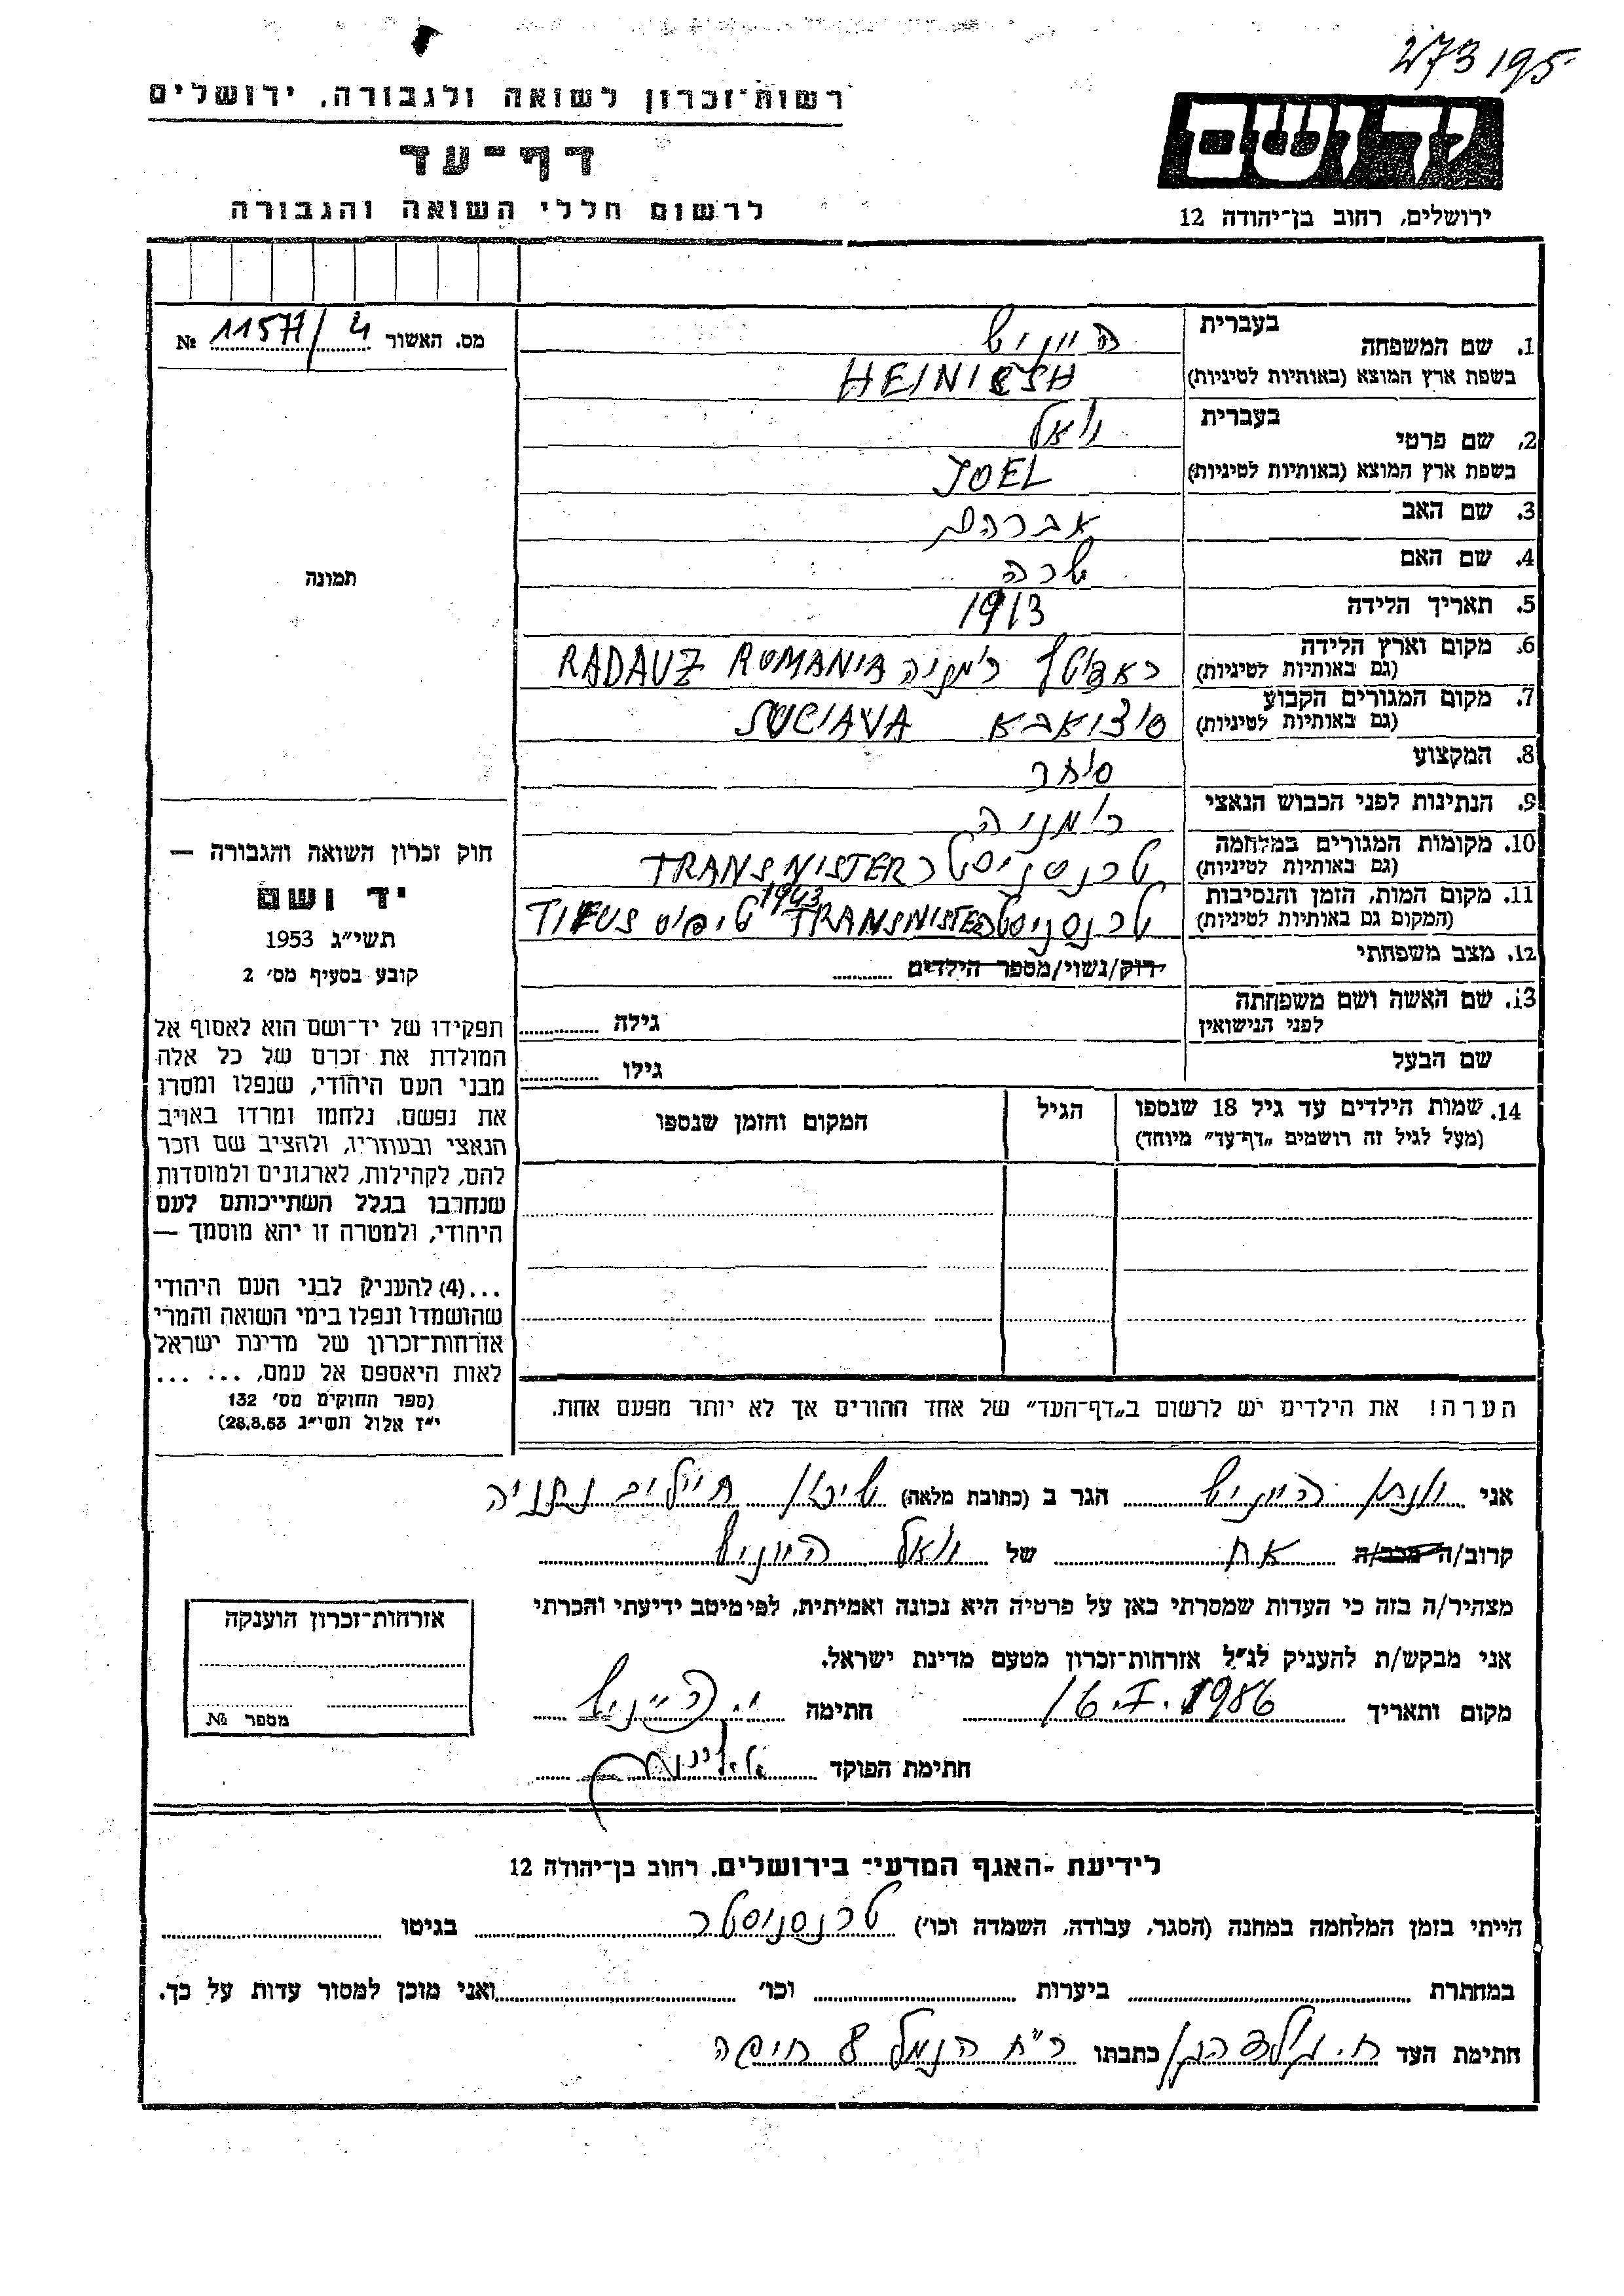 273195
רשות־זכרון לשואה ולגבורה, ירושלים
דף־עד
לרשום חללי השואה והגבורה
יד ושם
ירושלים, רחוב בן־יהודה 12
מס. האשור 11577/4 №
תמונה
1. שם המשפחה בעברית היוניש
בשפת ארץ המוצא (באותיות לטיניות) HEINISH
2. שם פרטי בעברית יואל
בשפת ארץ המוצא (באותיות לטיניות) JOEL
3. שם האב אברהם
4. שם האם שרה
5. תאריך הלידה 1913
6. מקום וארץ הלידה (גם באותיות לטיניות) ראדוטץ רומניה RADAUZ ROMANIA
7. מקום המגורים הקבוע (גם באותיות לטיניות) סוצואבא SUCIAVA
8. המקצוע סוחר
9. הנתינות לפני הכבוש הנאצי רומניה
10. מקומות המגורים במלחמה (גם באותיות לטיניות) טרנסניסטר TRANSNISTER
11. מקום המות, הזמן והנסיבות (המקום גם באותיות לטיניות) טרנסניסטר TRANSNISTER 1943 טיפוס TIFUS
12. מצב משפחתי רווק/נשוי/מספר הילדים
13. שם האשה ושם משפחתה לפני הנישואין גילה
שם הבעל גילו
14. שמות הילדים עד גיל 18 שנספו (מעל לגיל זה רושמים „דף־עד” מיוחד) הגיל המקום והזמן שנספו
חוק זכרון השואה והגבורה —
יד ושם
תשי״ג 1953
קובע בסעיף מס׳ 2
תפקידו של יד־ושם הוא לאסוף אל
המולדת את זכרם של כל אלה
מבני העם היהודי, שנפלו ומסרו
את נפשם, נלחמו ומרדו באויב
הנאצי ובעוזריו, ולהציב שם וזכר
להם, לקהילות, לארגונים ולמוסדות
שנחרבו בגלל השתייכותם לעם
היהודי, ולמטרה זו יהא מוסמך —
...(4) להעניק לבני העם היהודי
שהושמדו ונפלו בימי השואה והמרי
אזרחות־זכרון של מדינת ישראל
לאות היאספם אל עמם, ... ...
(ספר החוקים מס׳ 132
י״ז אלול תשי״ג 28.8.53)
הערה! את הילדים יש לרשום ב„דף־העד” של אחד ההורים אך לא יותר מפעם אחת.
אני היוניש הגר ב (כתובת מלאה) שיכון חיילים נתניה
קרוב/ה מכר/ה אח של יואל היוניש
מצהיר/ה בזה כי העדות שמסרתי כאן על פרטיה היא נכונה ואמיתית, לפי מיטב ידיעתי והכרתי
אני מבקש/ת להעניק לנ״ל אזרחות־זכרון מטעם מדינת ישראל.
מקום ותאריך 16.I.1986 חתימה י. היוניש
חתימת הפוקד
אזרחות־זכרון הוענקה
מספר №
לידיעת ־האגף המדעי־ בירושלים, רחוב בן־יהודה 12
הייתי בזמן המלחמה במחנה (הסגר, עבודה, השמדה וכו׳) טרנסניסטר בגיטו
במחתרת ביערות וכו׳ ואני מוכן למסור עדות על כך.
חתימת העד ח. כתבתו רח׳ הנמל 8 חיפה